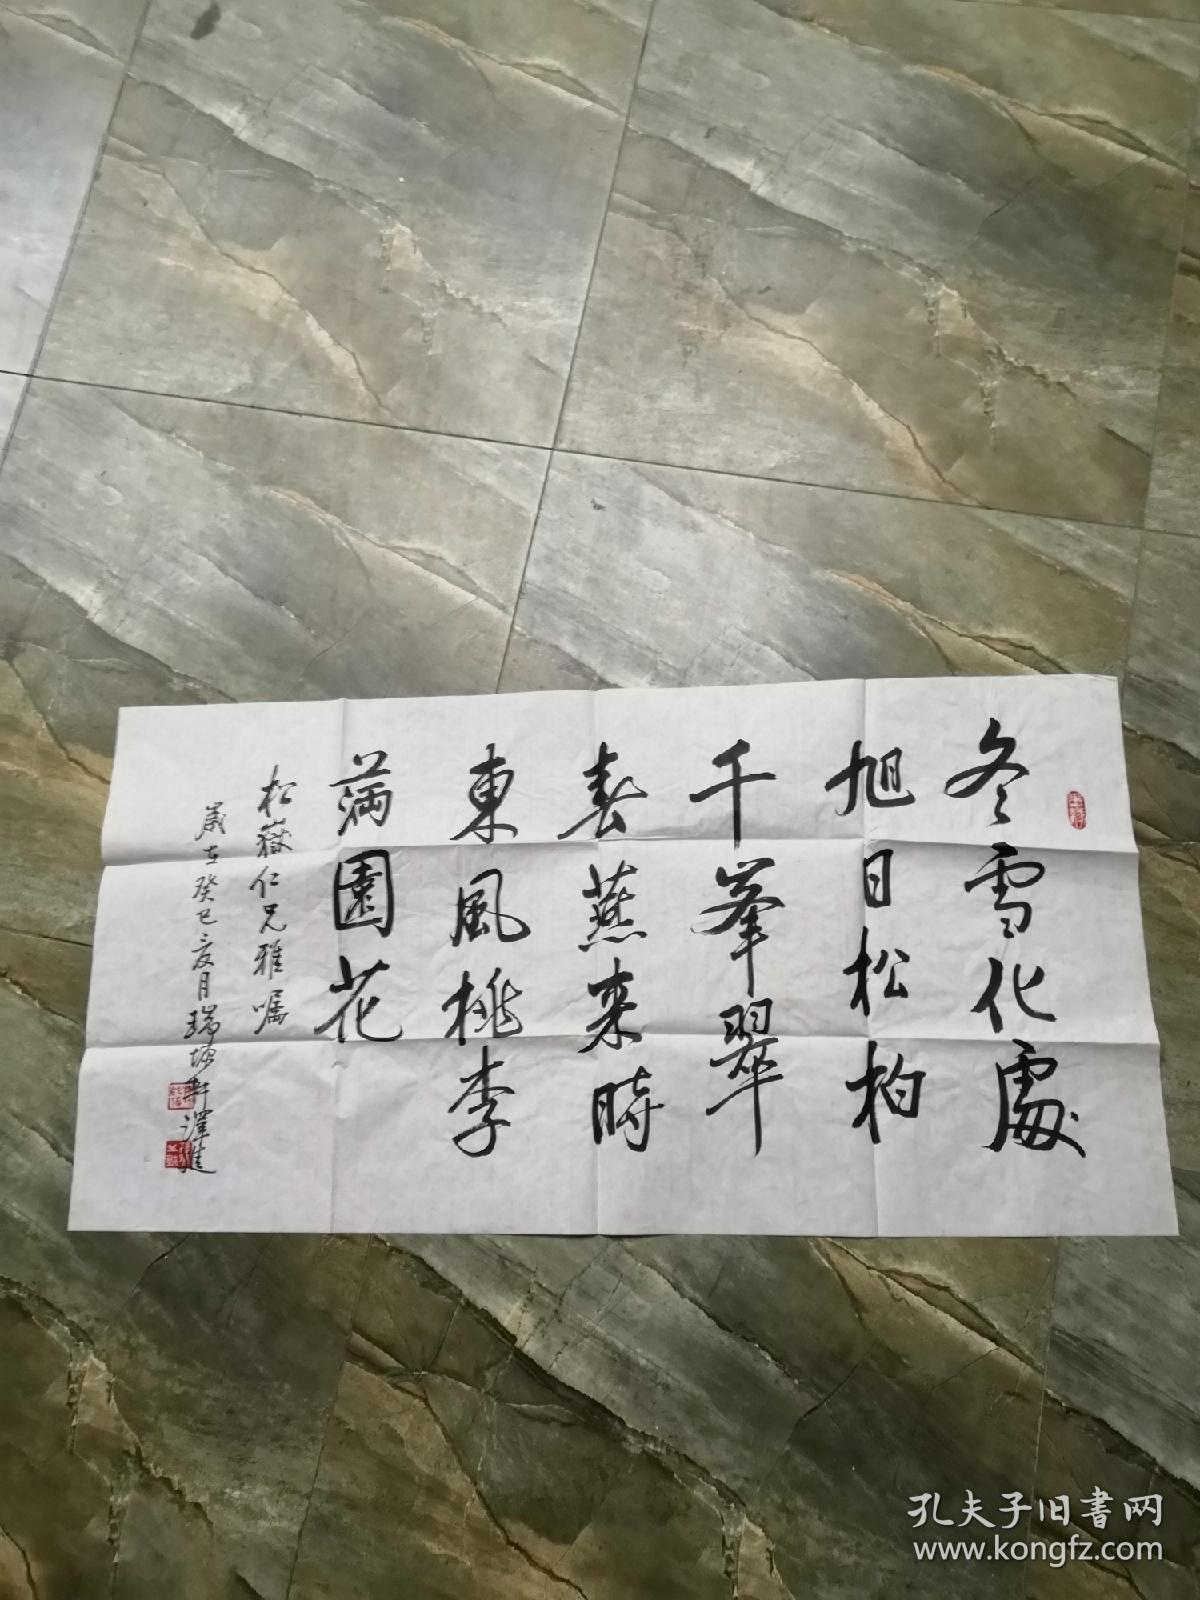 冬雪化處
旭日松柏
千峯翠
春燕来時
東風桃李
满園花
松嶽仁兄雅嘱
歲在癸巳亥月瑞坡軒澤建
孔夫子旧書网
www.kongfz.com